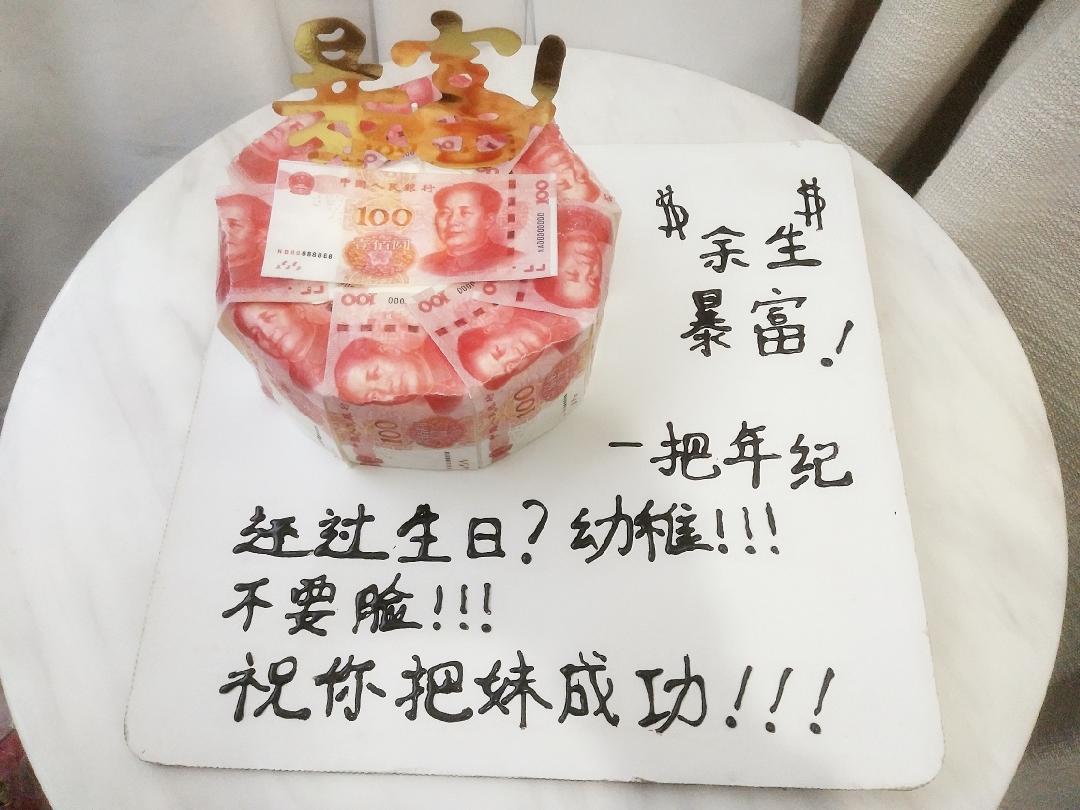 暴富!
中国人民银行
100
100
壹佰圆
100
000
100
000
100
100
$ 余生 $
暴富!
一把年纪
还过生日?幼稚!!!
不要脸!!!
祝你把妹成功!!!